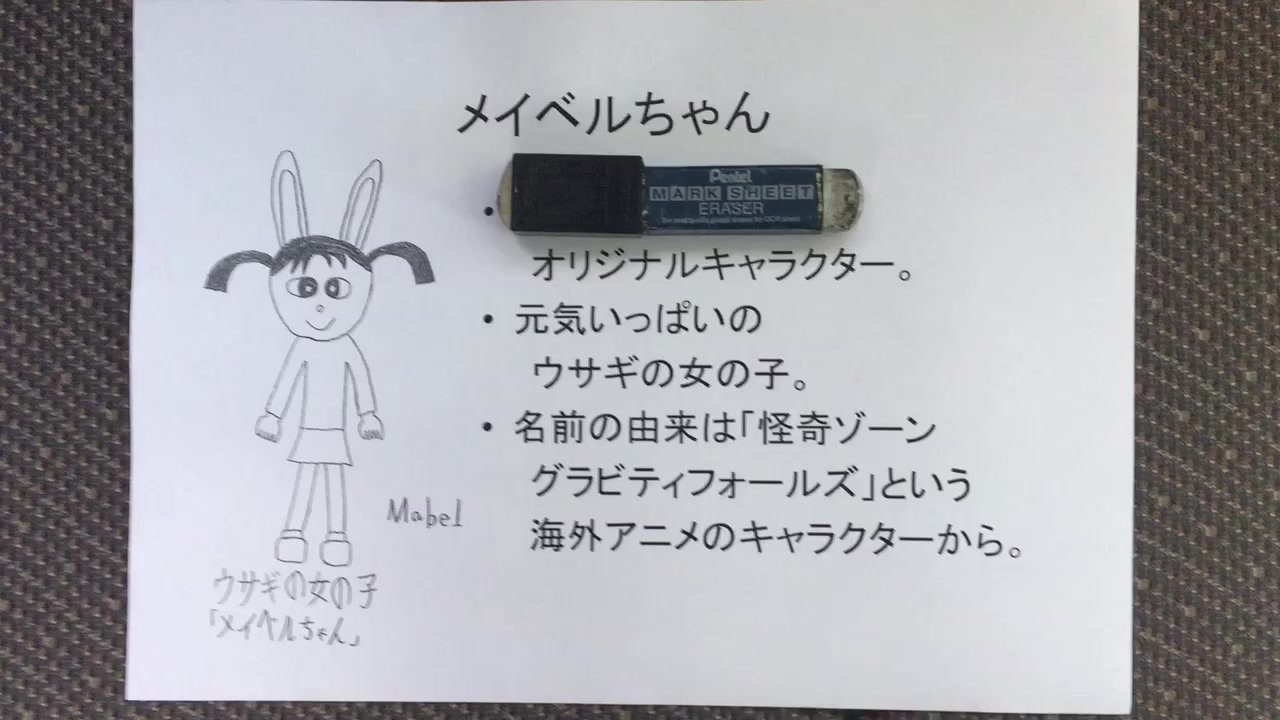 メイベルちゃん
Pentel
MARK SHEET
ERASER
•
オリジナルキャラクター。
• 元気いっぱいの
ウサギの女の子。
• 名前の由来は「怪奇ゾーン
グラビティフォールズ」という
海外アニメのキャラクターから。
Mabel
ウサギの女の子
「メイベルちゃん」